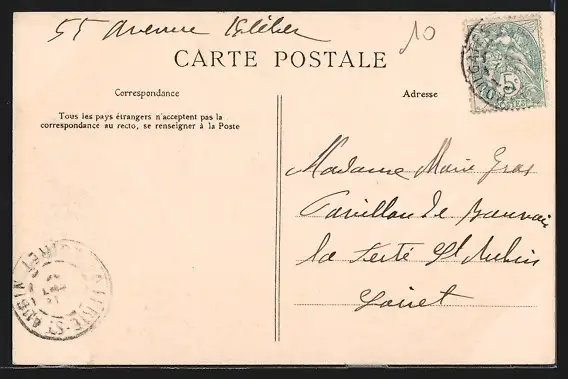 55 avenue Kléber
10
CARTE POSTALE
Correspondance
Tous les pays étrangers n'acceptent pas la
correspondance au recto, se renseigner à la Poste
Adresse
5c
POSTES
Madame Marie Gras
Pavillon de Beauvais
La Ferté St Aubin
Loiret
LOIRET